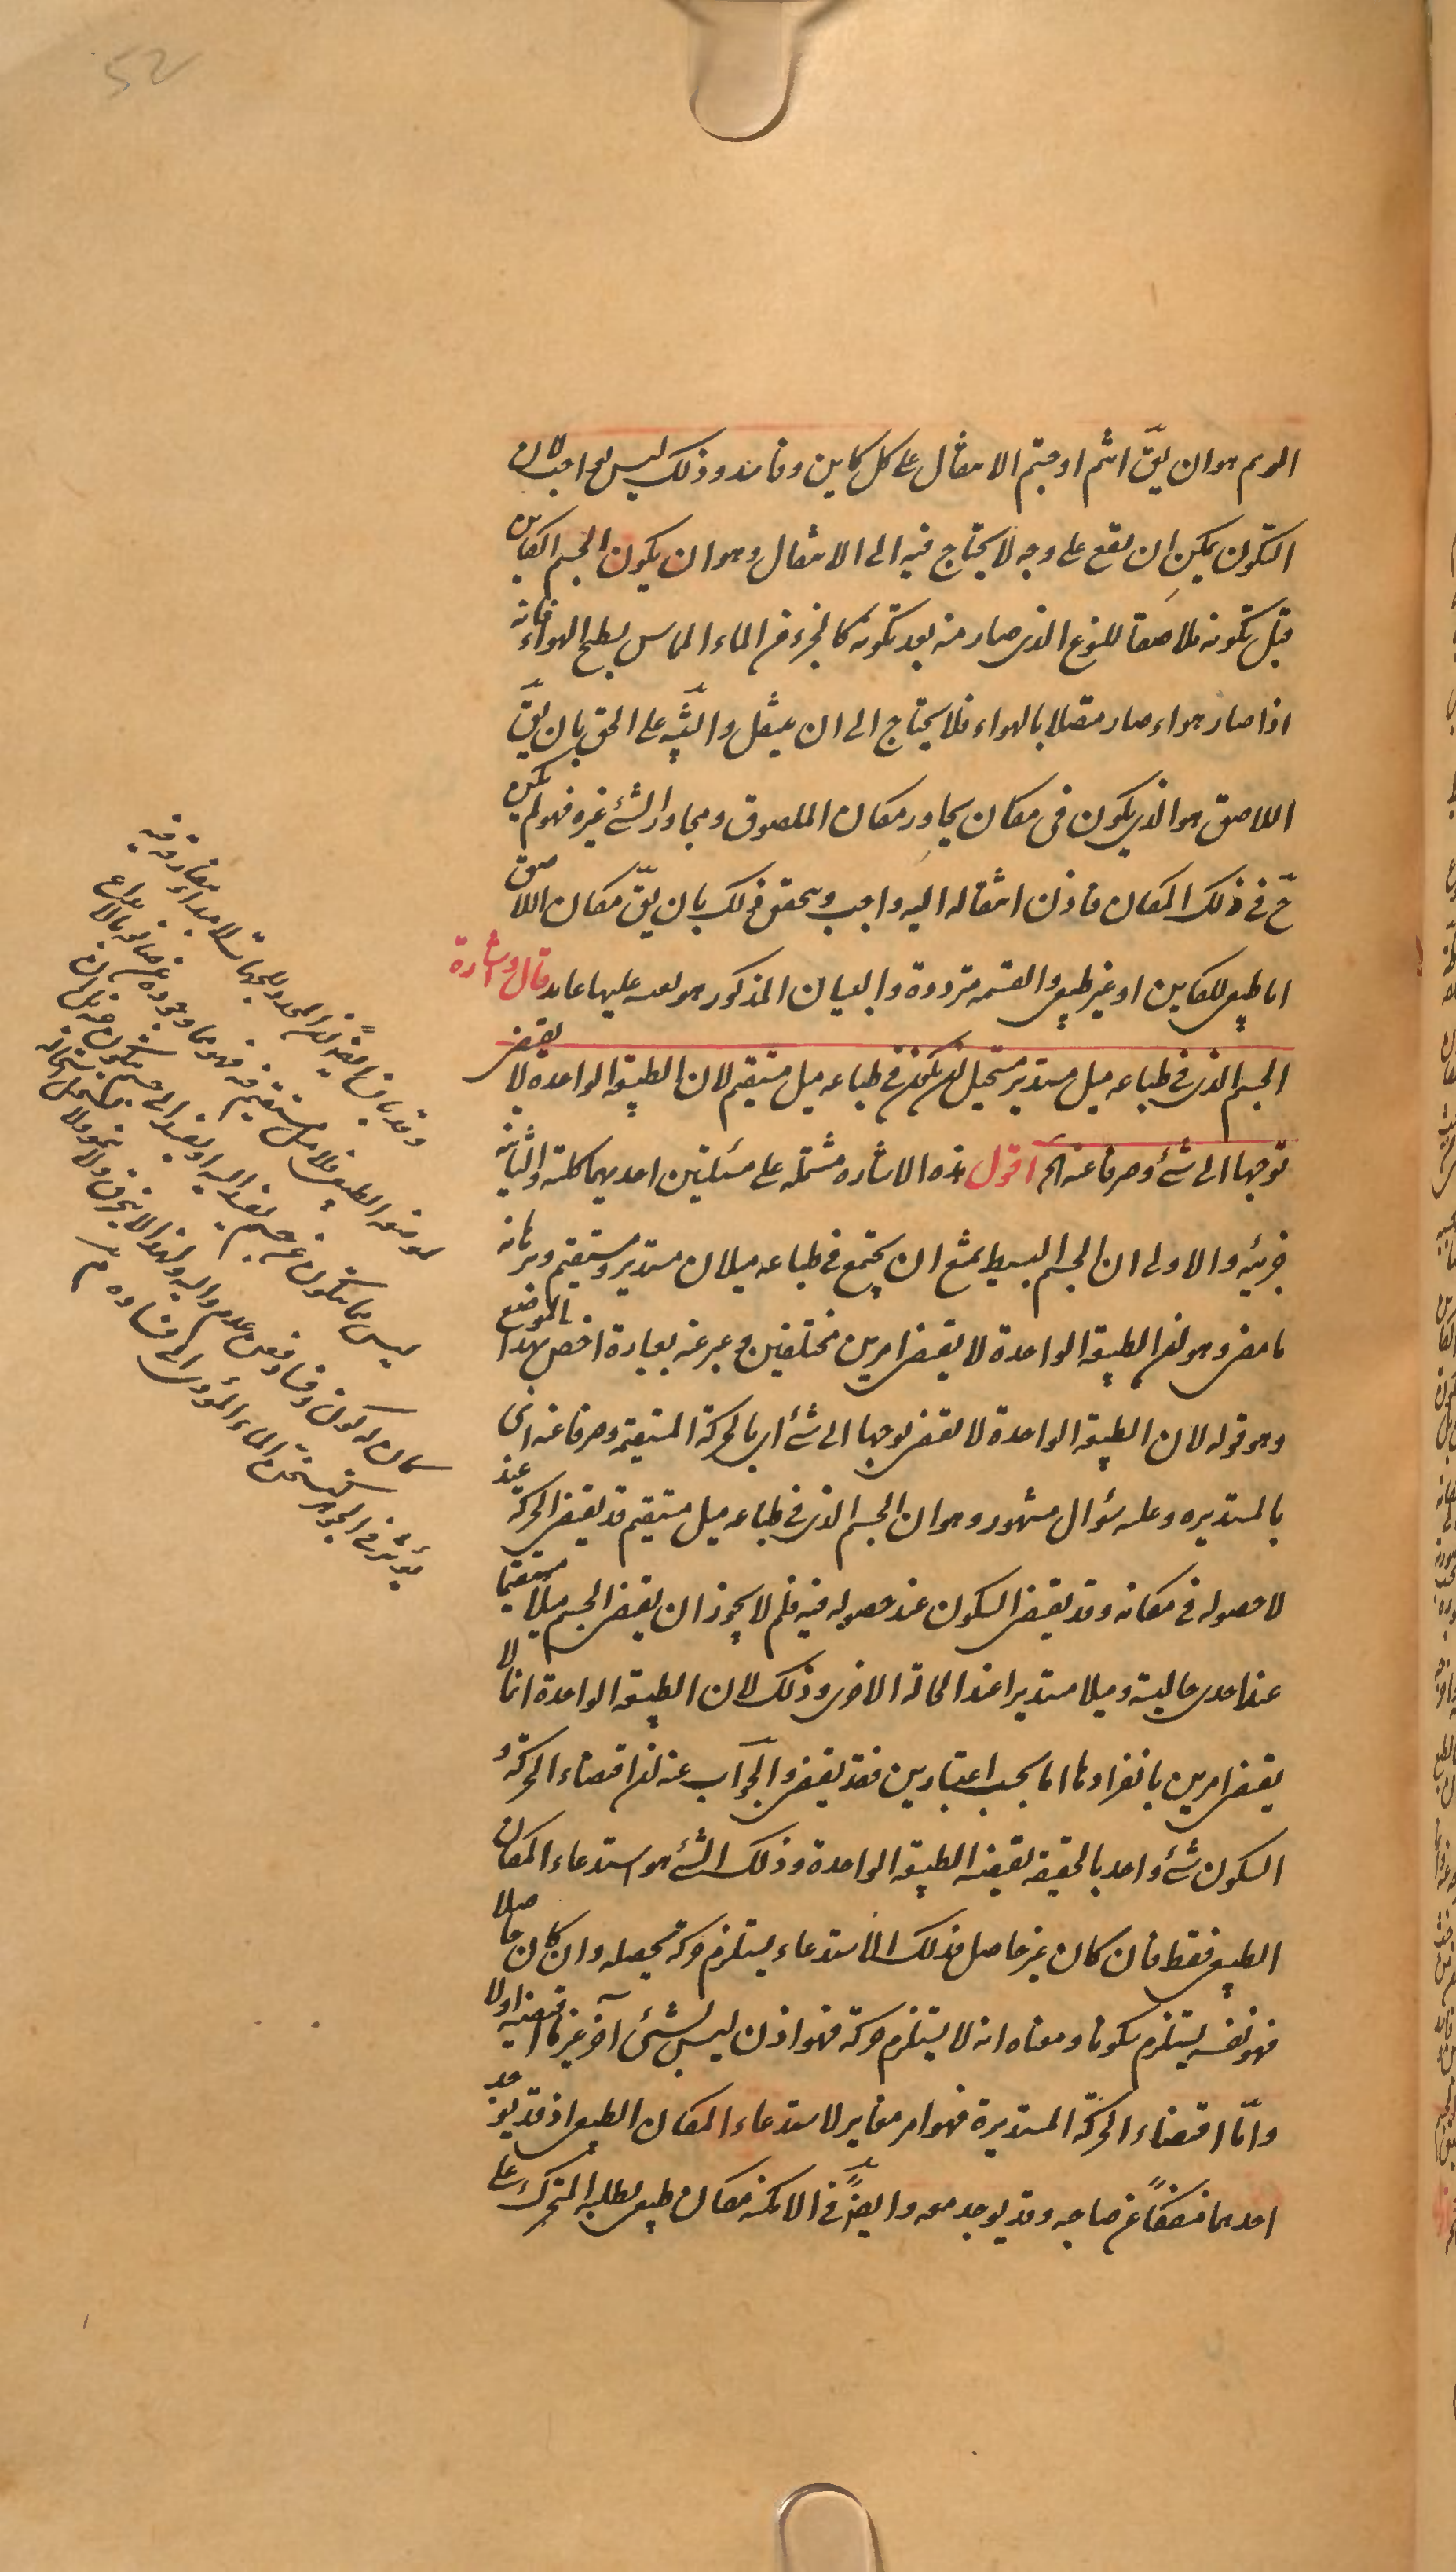 52
الوهم هو ان يقّ انكم اوجبتم الانتقال على كل كاين وفاسد وذلك ليس بواجب لان
التكون يمكن ان يقع على وجه لا يحتاج فيه الى الانتقال وهو ان يكون الجسم الكاين
قبل تكونه ملاصقا للنوع الذى صار منه بعد تكونه كالجزء من الماء المماس لسطح الهواء فانه
اذا صار هواء صار متصلا بالهواء فلا يحتاج الى ان ينتقل والتنبيه على الحق بان يقّ
اللاصق هو الذى يكون فى مكان يجاور مكان الملصوق ومجاور الشئ غيره فهو لم يكن
حّ فى ذلك المكان فاذن انتقاله اليه واجب ويتحقق ذلك بان يقّ مكان اللاصق
اما طبيعى للكاين او غير طبيعى والقسمة مترددة والبيان المذكور هو بعينه عليهما عايد قال اشارة
الجسم الذى فى طباعه ميل مستدير مستحيل ان يكون فى طباعه ميل مستقيم لان الطبيعة الواحدة لا يقتضى
توجها الى شئ وصرفا عنه الخ اقول هذه الاشارة مشتملة على مسئلتين احديهما كلية والثانية
جزئية والاولى ان الجسم البسيط يمتنع ان يجتمع فى طباعه ميلان مستدير ومستقيم وبرهانه
ما مضى وهو ان الطبيعة الواحدة لا يقتضى امرين مختلفين وعبر عنه بعبارة اخص بهذا الموضع
وهو قوله لان الطبيعة الواحدة لا تقتضى توجها الى شئ اى بالحركة المستقيمة وصرفا عنه اى
بالمستديرة وعليه سؤال مشهور وهو ان الجسم الذى فى طباعه ميل مستقيم قد يقتضى الحركة عند
لا حصوله فى مكانه وقد يقتضى السكون عند حصوله فيه فلم لا يجوز ان يقتضى الجسم ميلا مستقيما
عند احدى حاليته وميلا مستديرا عند الحالة الاخرى وذلك لان الطبيعة الواحدة انما لا
يقتضى امرين بانفرادها اما بحسب اعتبارين فقد يقتضى والجواب عنه ان اقتضاء الحركة و
السكون شئ واحد بالحقيقة يقتضيه الطبيعة الواحدة وذلك الشئ هو استدعاء المكان
الطبيعى فقط فان كان غير حاصل فذلك الاستدعاء يستلزم حركة تحصله وان كان حاصلا
فهو بنفسه يستلزم سكونا ومعناه انه لا يستلزم حركة فهو اذن ليس بشئ آخر غير ما اقتضته اولا
واما اقتضاء الحركة المستديرة فهو امر مغاير لاستدعاء المكان الطبيعى اذ قد يوجد
احدهما منفكا عن صاحبه وقد يوجد معه وايضا فى الامكنة مكان طبيعى يطلبه المتحرك على
وقد بان ايضا ان المحدد للجهات لا مبداء مفارقة فيه
لموضعه الطبيعى فلا ميل مستقيم فيه فهو مما وجوده عن صانعه بالابداع
ليس مما يتكون عن جسم يفسد اليه او يفسد الى جسم يتكون عنه بل ان
كان له كون وفساد فعن عدم واليه ولهذا لا ينخرق ولا ينمو ولا يستحيل استحالة
يؤثر فى الجوهر كتسخن الماء المؤدى الى فساده م